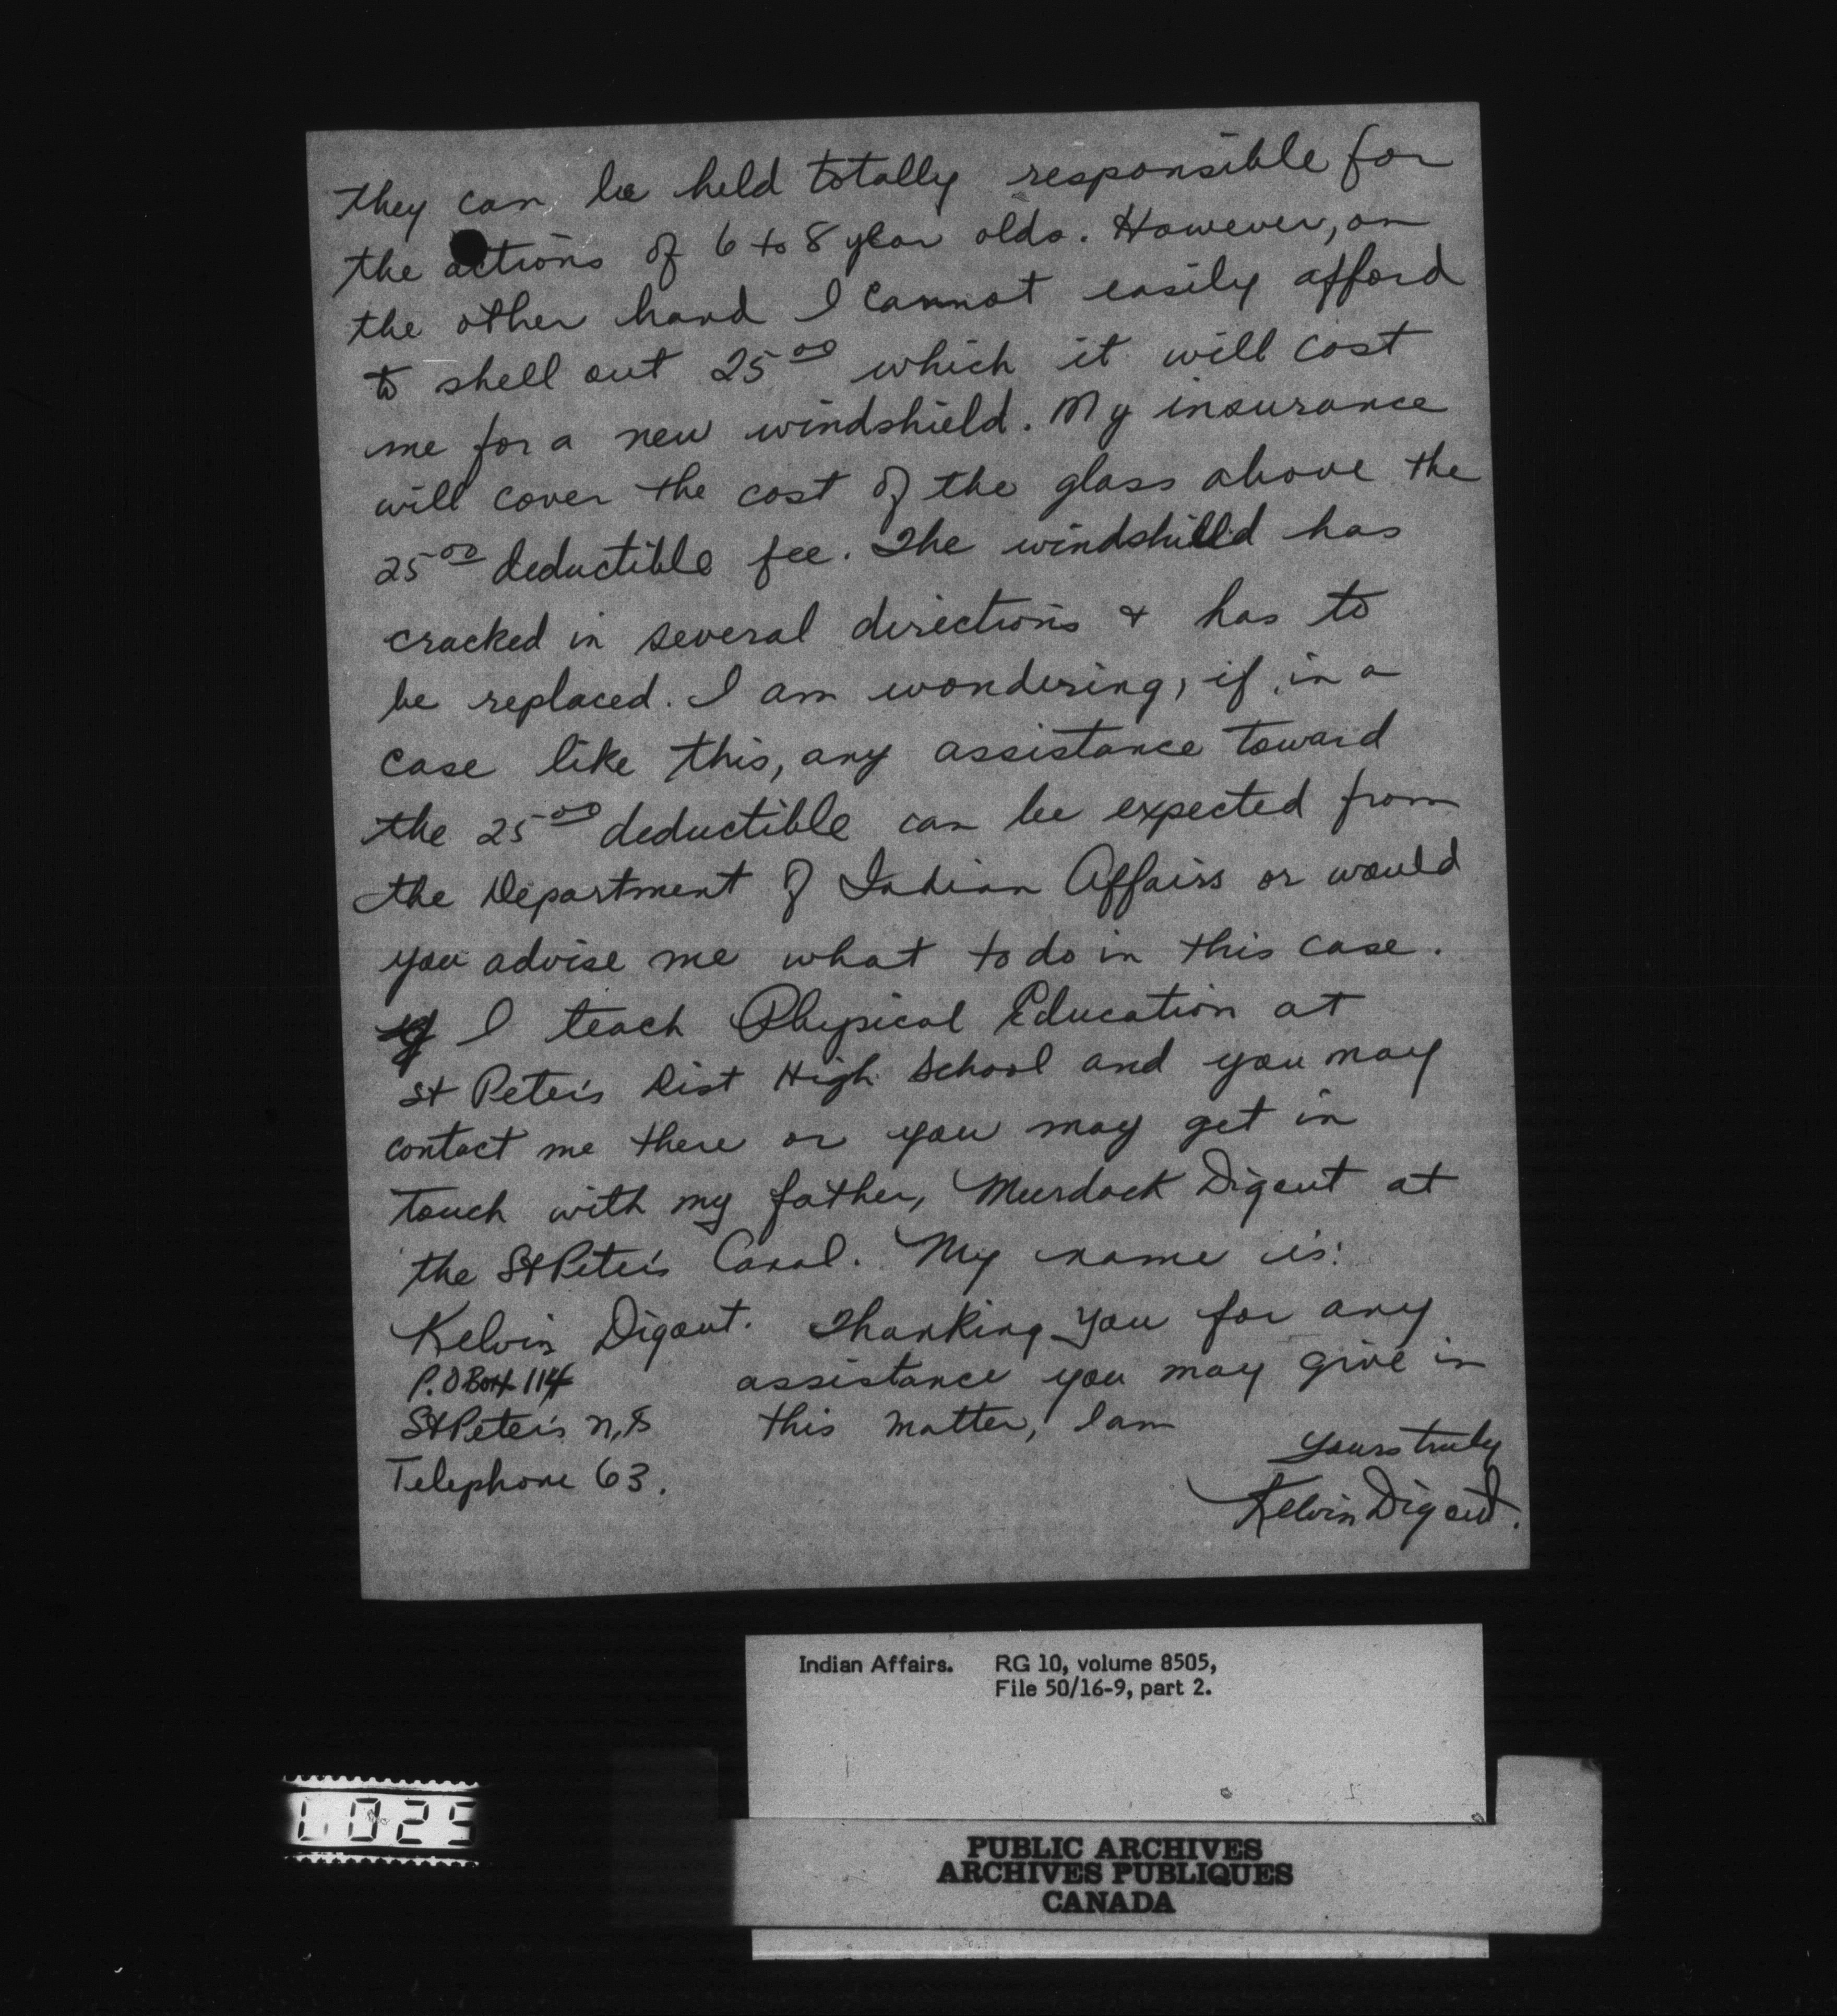 they can be held totally responsible for
the actions of 6 to 8 year olds. However, on
the other hand I cannot easily afford
to shell out 25.00 which it will cost
me for a new windshield. My insurance
will cover the cost of the glass above the
25.00 deductible fee. The windshield has
cracked in several directions & has to
be replaced. I am wondering, if, in a
case like this, any assistance toward
the 25.00 deductible can be expected from
the Department of Indian Affairs or would
you advise me what to do in this case.
I teach Physical Education at
St Peter's Dist High School and you may
contact me there or you may get in
touch with my father, Murdock Digout at
the St Peter's Canal. My name is:
Kelvin Digout. Thanking you for any
P.O Box 114 assistance you may give in
St Peter's N.S this matter, I am
Yours truly
Telephone 63.
Kelvin Digout.
Indian Affairs. RG 10, volume 8505,
File 50/16-9, part 2.
0025
PUBLIC ARCHIVES
ARCHIVES PUBLIQUES
CANADA